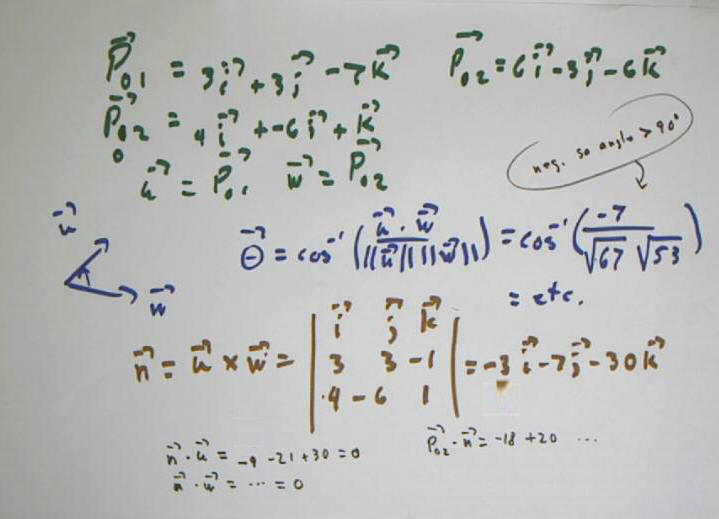 P⃗₀₁ = 3i⃗ + 3j⃗ - 7k⃗   P⃗₀₂ = 6i⃗ - 3j⃗ - 6k⃗
P⃗₀₂ = 4i⃗ + -6j⃗ + k⃗
0
u⃗ = P⃗₀₁   w⃗ = P⃗₀₂
neg. so angle > 90°
u⃗
θ⃗ = cos⁻¹ (u⃗ · w⃗ / ||u⃗|| ||w⃗||) = cos⁻¹ (-7 / √67 √53)
w⃗
= etc.
n⃗ = u⃗ × w⃗ = | i⃗ j⃗ k⃗ | = -3i⃗ - 7j⃗ - 30k⃗
3 3 -1
4 -6 1
n⃗ · u⃗ = -9 -21 +30 = 0   P⃗₀₂ · n⃗ = -18 + 20 ...
n⃗ · w⃗ = ... = 0